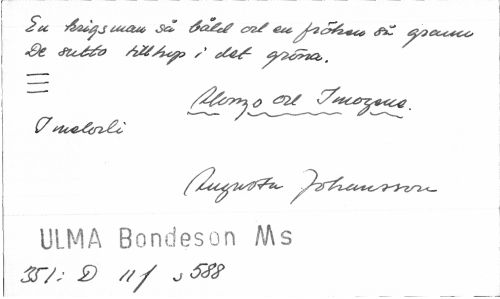 En krigsman så båld och en fröken så grann
De sutto tillhop i det gröna.
Alonzo och Imogena.
I melodi
Augusta Johansson
ULMA Bondeson Ms
351: D 11f s 588